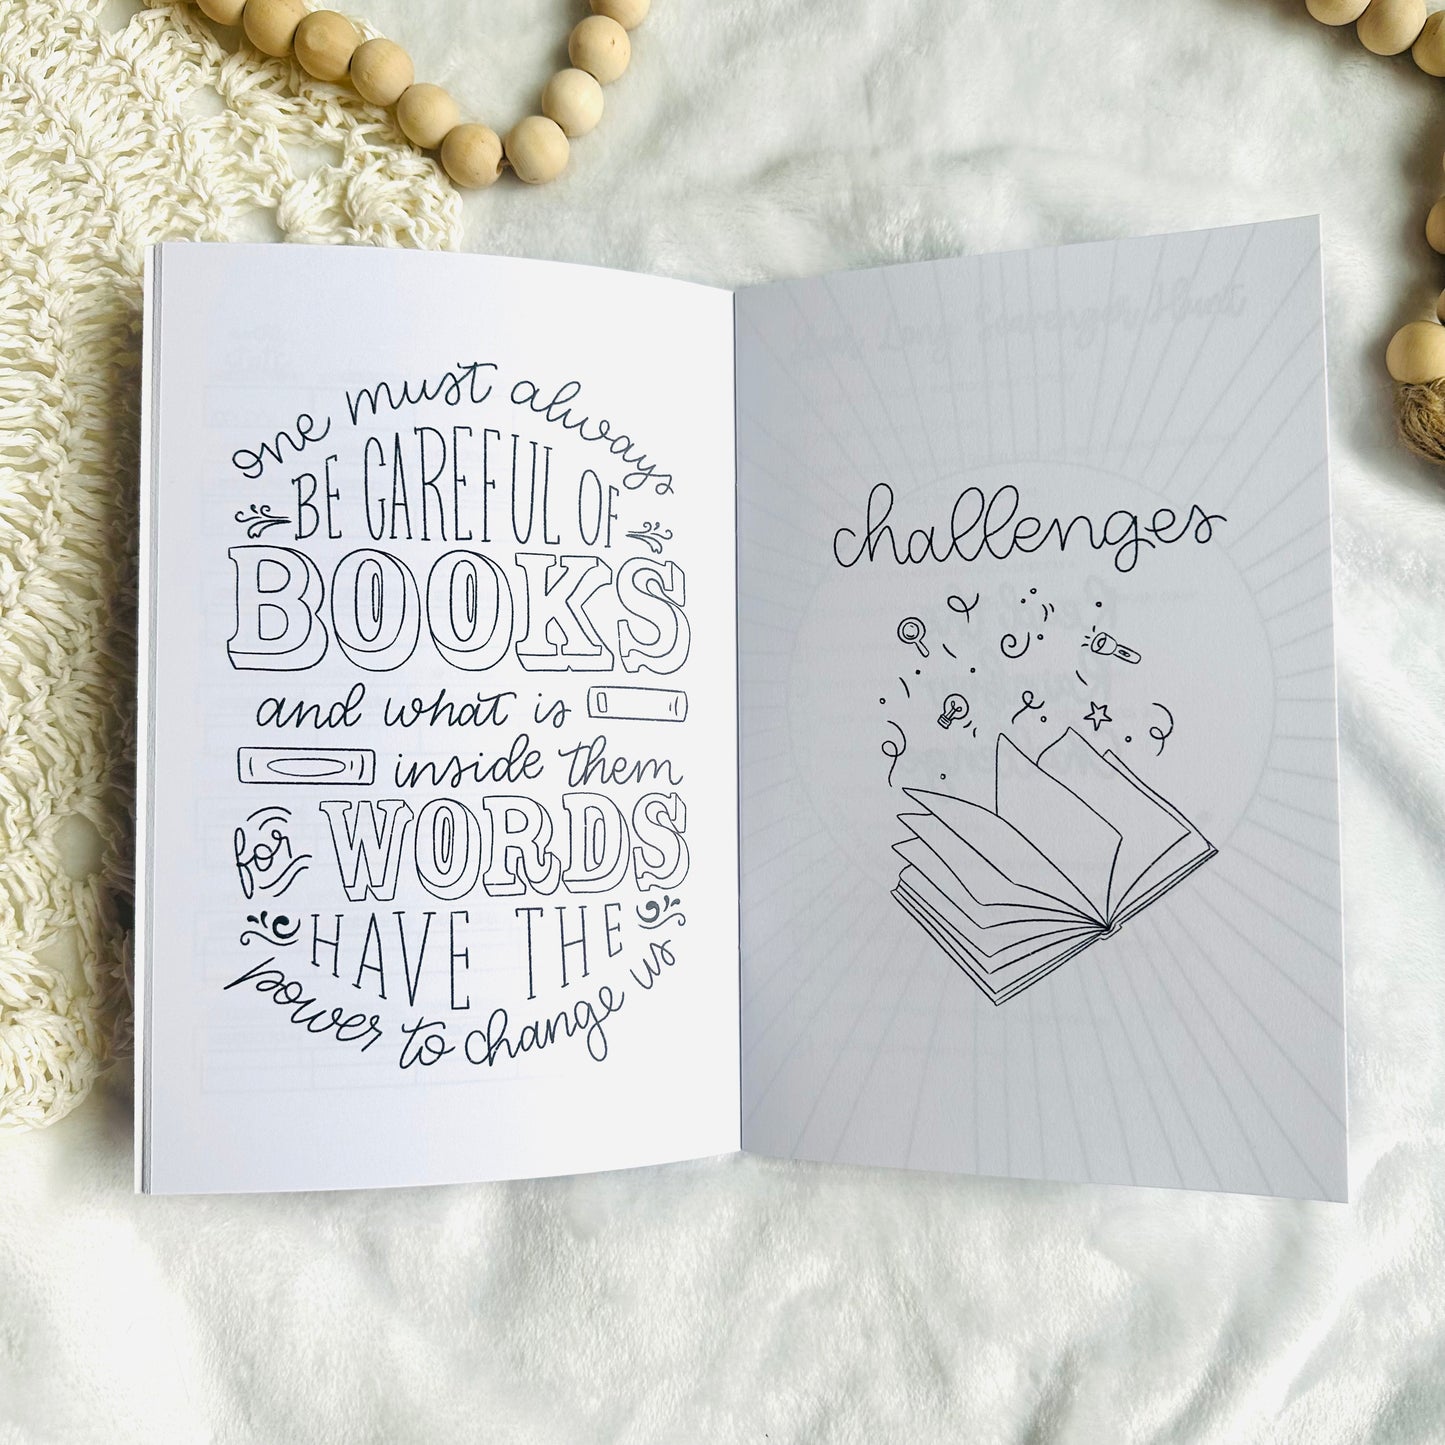 one must always
BE CAREFUL OF
BOOKS
and what is
inside them
for WORDS
HAVE THE
power to change us
challenges